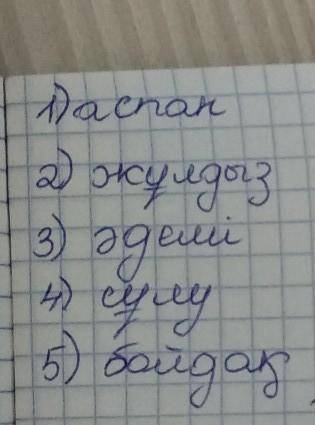 1) аспан
2) жұлдыз
3) әдемі
4) сұлу
5) бойдақ